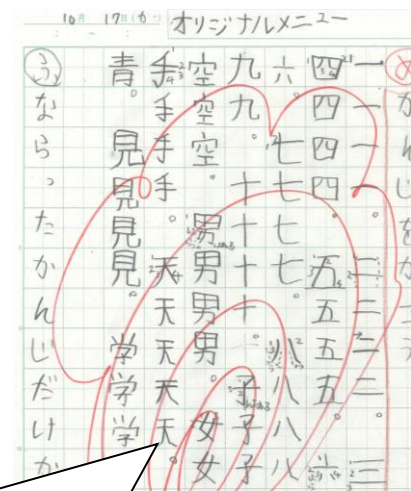 10月 17日(か)
オリジナルメニュー
め かんじをかこう
一一一一。二二二二。三
四四四四。五五五五。六
六。七七七七。八八八八
九九。十十十十。子子子
空空空。男男男男。女女
手手手手。天天天天。
青。見見見見。学学学
ふ ならったかんじだけか